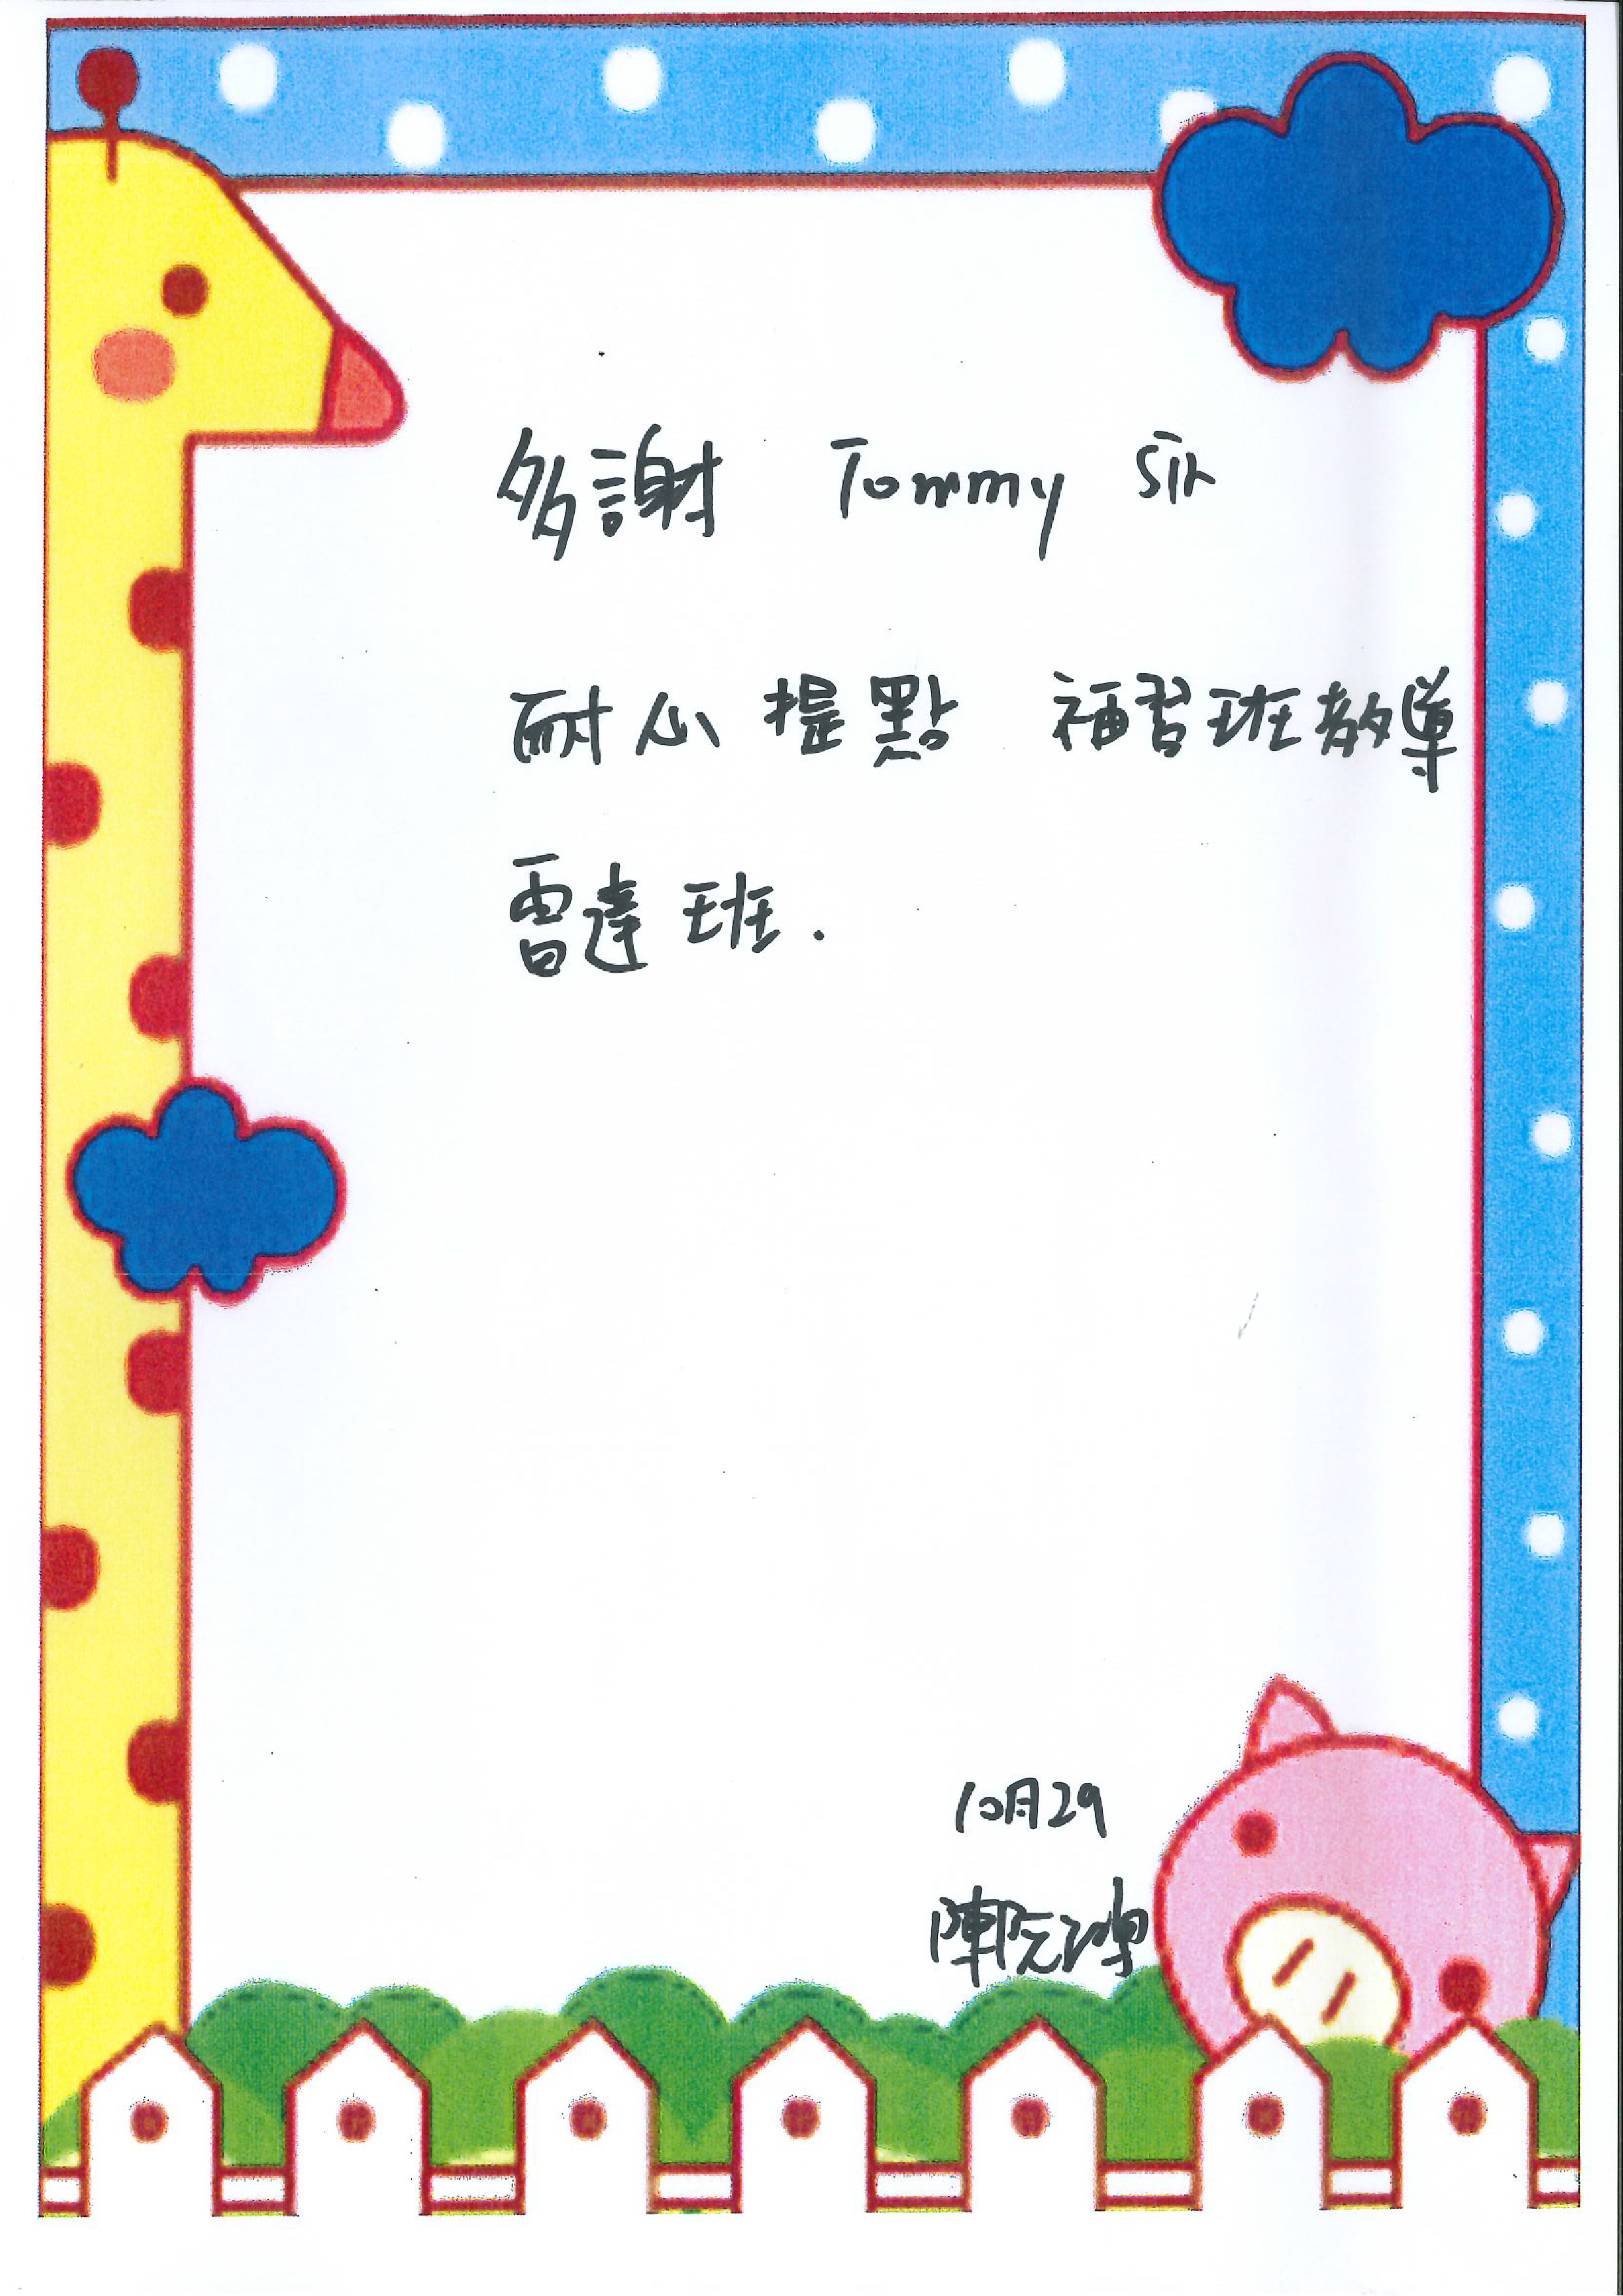 多謝 Tommy Sir
耐心提點 補習班教導
雷達班.
10月29
陳阮瑋